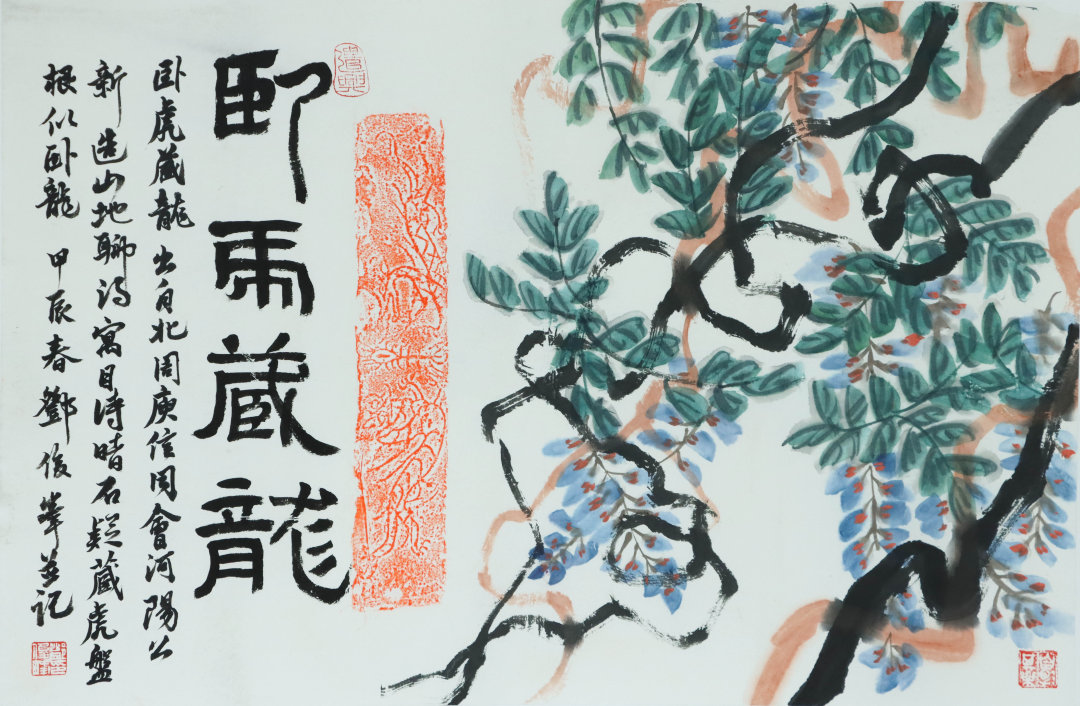 卧虎藏龍
卧虎藏龍出自北周庾信同會河陽公
新造山地聊得寓目诗暗石疑藏虎盤
根似卧龍 甲辰春鄧俊峰並记